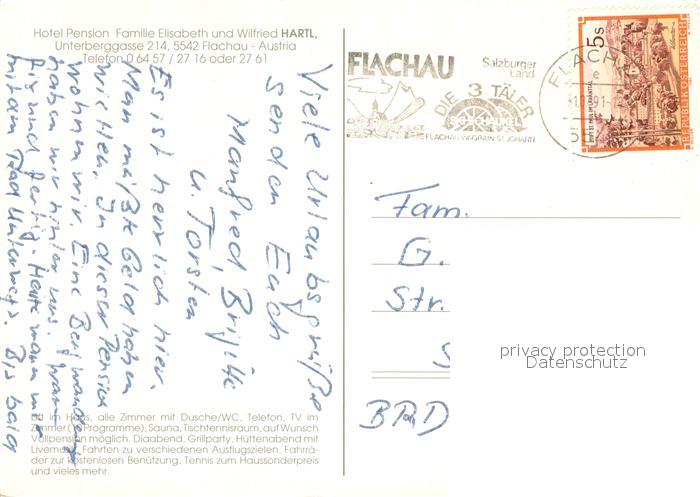 Hotel Pension Familie Elisabeth und Wilfried HARTL,
Unterberggasse 214, 5542 Flachau - Austria
Telefon 0 64 57 / 27 16 oder 27 61
FLACHAU
Salzburger
Land
DIE 3 TÄLER
SKISCHAUKEL
FLACHAU-WAGRAIN-ST.JOHANN
FLACH
5s
REPUBLIK ÖSTERREICH
Viele Urlaubsgrüße
senden Euch
Manfred, Brigitte
u. Torsten
Es ist herrlich hier.
Man müßte Geld haben
In dieser Pension
wohnen wir. Eine Bergwanderung
haben wir hinter uns.
fix und fertig. Heute waren wir
mit dem Rad unterwegs. Bis bald
Fam.
G.
Str.
BRD
privacy protection
Datenschutz
Lift im Haus, alle Zimmer mit Dusche/WC, Telefon, TV im
Zimmer ( Programme), Sauna, Tischtennisraum, auf Wunsch
Vollpension möglich. Diaabend, Grillparty, Hüttenabend mit
Livemusik, Fahrten zu verschiedenen Ausflugszielen, Fahrrä-
der zur kostenlosen Benützung, Tennis zum Haussonderpreis
und vieles mehr.